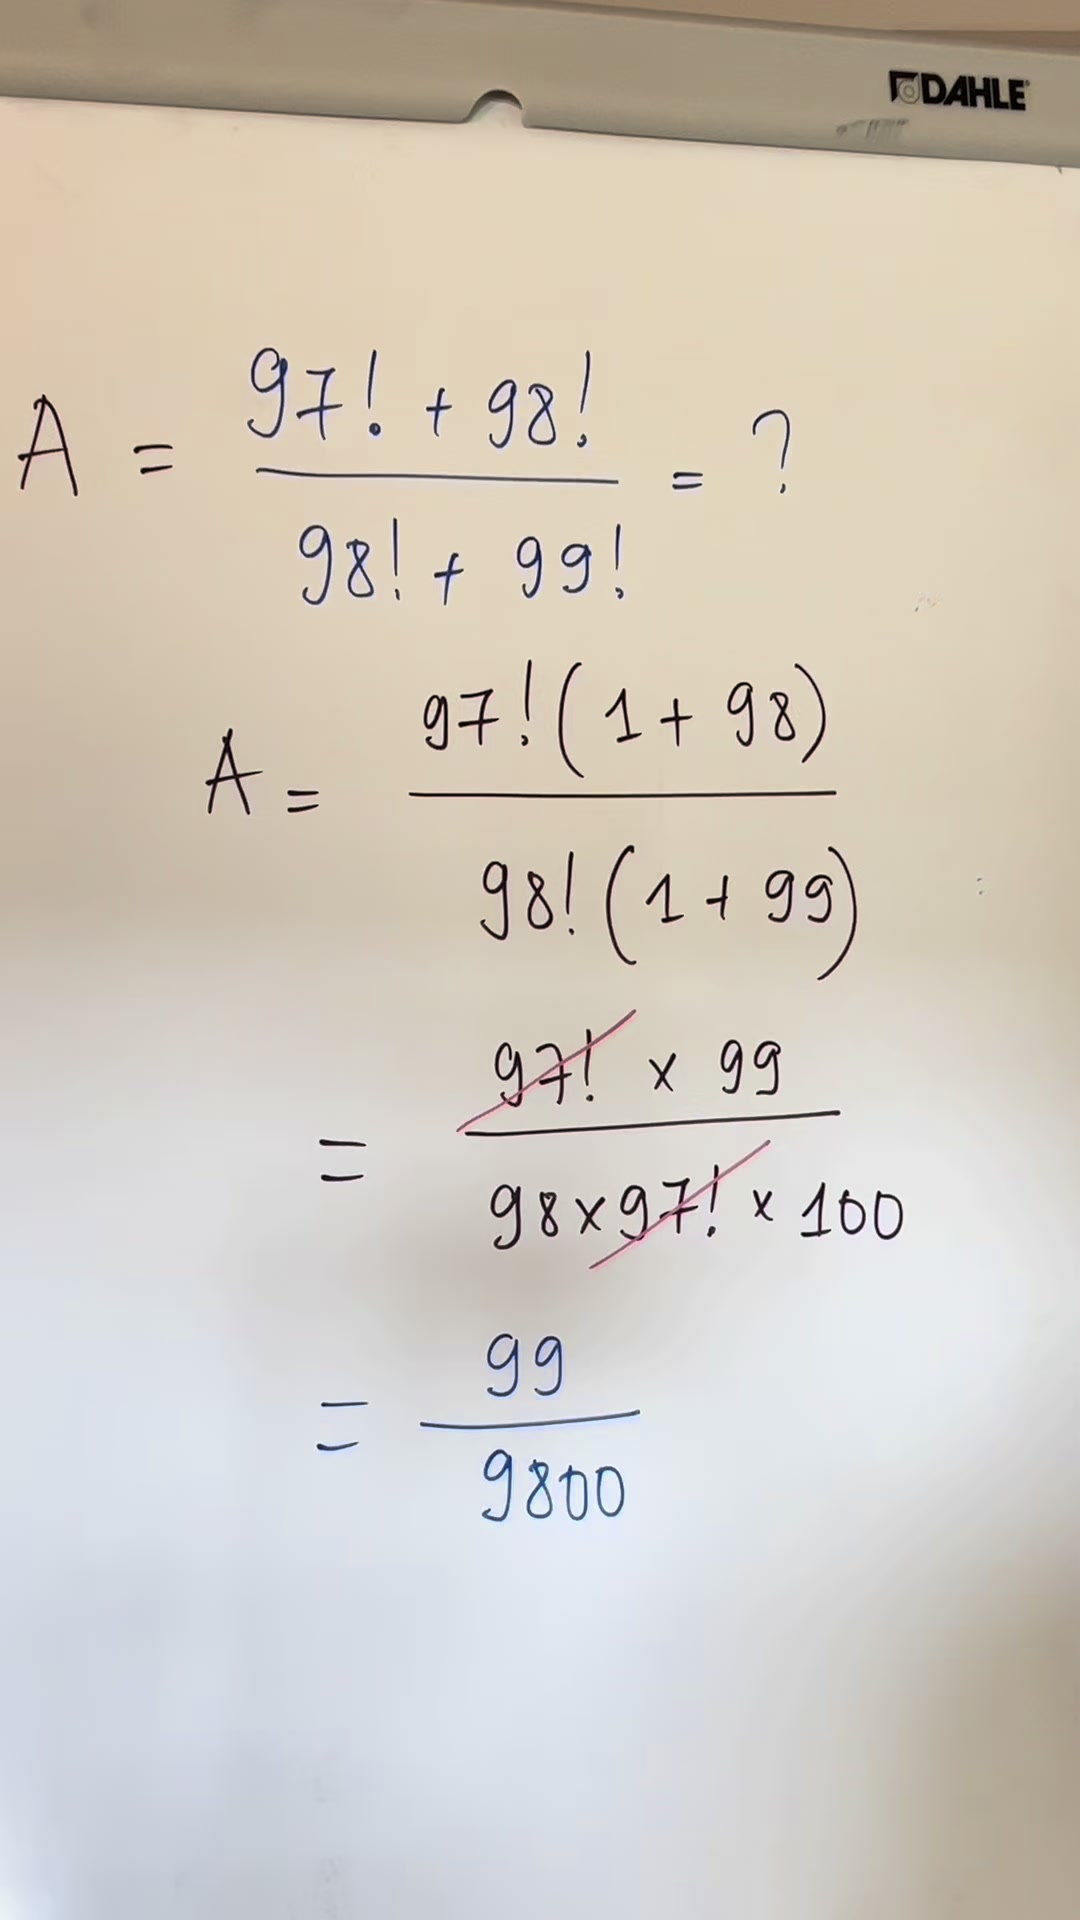 DAHLE
A = 97! + 98! / 98! + 99! = ?
A = 97! (1 + 98) / 98! (1 + 99)
= 97! × 99 / 98 × 97! × 100
= 99 / 9800